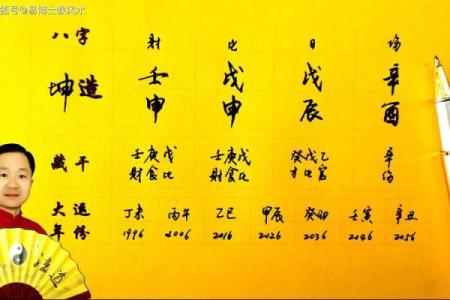 狐号@易博士教风水
八字 財 比 日 傷
坤造 壬申 戊申 戊辰 辛酉
藏干 壬庚戊 壬庚戊 癸戊乙 辛
財食比 財食比 才比官 傷
大運 丁未 丙午 乙巳 甲辰 癸卯 壬寅 辛丑
年份 1996 2006 2016 2026 2036 2046 2056